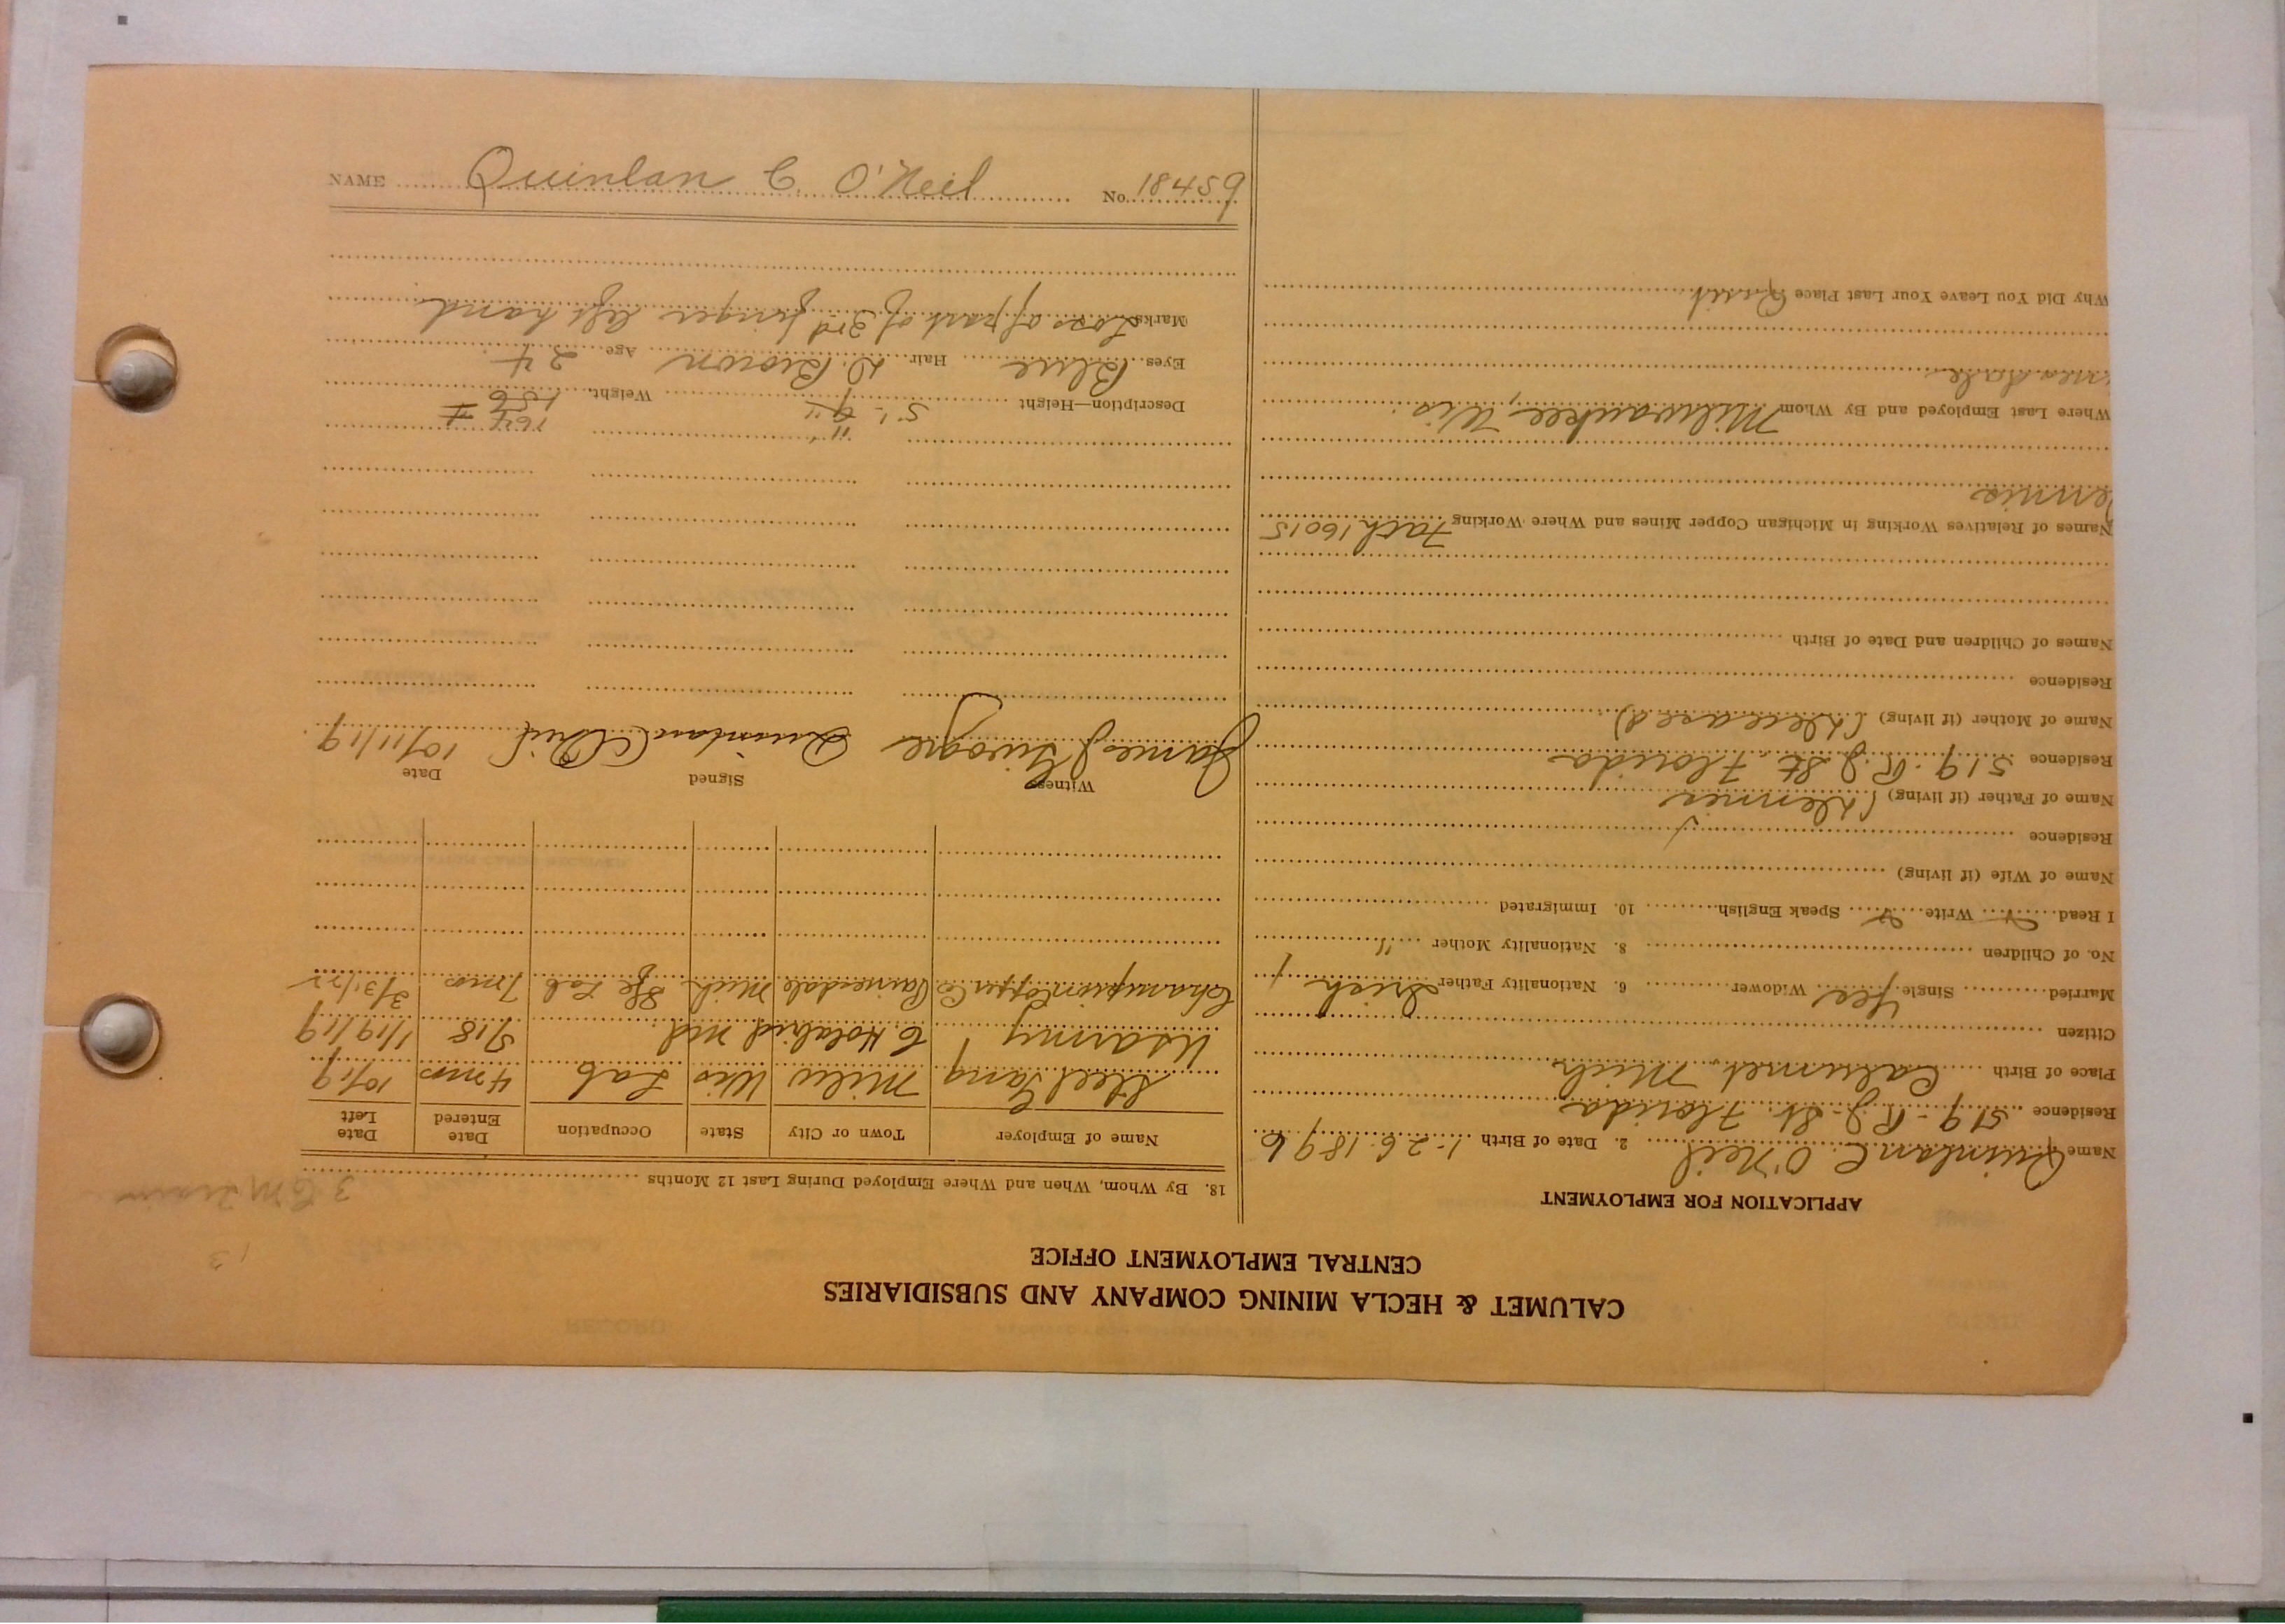 CALUMET & HECLA MINING COMPANY AND SUBSIDIARIES
CENTRAL EMPLOYMENT OFFICE
APPLICATION FOR EMPLOYMENT
Name Quinlan C. O'Neil 2. Date of Birth 1-26-1896
Residence 519-R.J. St. Florida
Place of Birth Calumet, Mich
Citizen
Married Single Yes Widower 6. Nationality Father Irish
No. of Children 8. Nationality Mother "
I Read Write Speak English 10. Immigrated
Name of Wife (if living)
Residence
Name of Father (if living) (Dennis
Residence 519-R.J. St. Florida
Name of Mother (if living) (Deceased)
Residence
Names of Children and Date of Birth
Names of Relatives Working in Michigan Copper Mines and Where Working Fath 16015
Dennis
Where Last Employed and By Whom Milwaukee, Wis.
Why Did You Leave Your Last Place Quit
18. By Whom, When and Where Employed During Last 12 Months
Name of Employer Town or City State Occupation Date Entered Date Left
Steel Gang Milw Wis Lab 4 mos 10/19
US Army 5/18 1/19/19
Champion Copper Co Painesdale Mich Lab 7 mos 3/31/22
Witness Signed Date
James J Quinlan C O'Neil 10/11/19.
" 164 #
Description—Height 5'-9" Weight 156
Eyes Blue Hair D. Brown Age 24
Marks Loss of part of 3rd finger left hand
NAME Quinlan C. O'Neil No. 18459